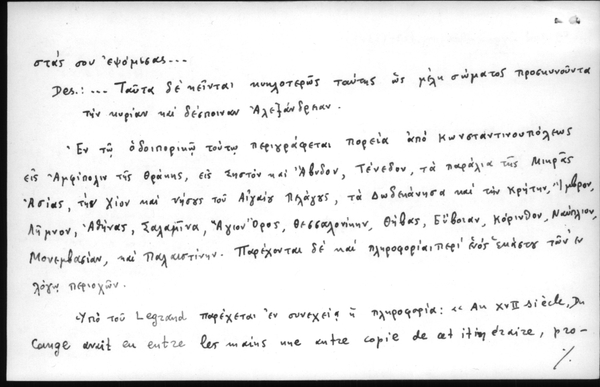 στάς σου ἐψόμισας...
Des.: ... Ταῦτα δὲ κεῖνται κυκλοτερῶς ταύτης ὡς μέλη σώματος προσκυνοῦντα
τὴν κυρίαν καὶ δέσποιναν Ἀλεξάνδρειαν.
Ἐν τῷ ὁδοιπορικῷ τούτῳ περιγράφεται πορεία ἀπὸ Κωνσταντινουπόλεως
εἰς Ἀμφίπολιν τῆς Θράκης, εἰς Σηστὸν καὶ Ἄβυδον, Τένεδον, τὰ παράλια τῆς Μικρᾶς
Ἀσίας, τὴν Χίον καὶ νήσους τοῦ Αἰγαίου Πελάγους, τὰ Δωδεκάνησα καὶ τὴν Κρήτην, Ἴμβρον,
Λῆμνον, Ἀθήνας, Σαλαμῖνα, Ἅγιον Ὄρος, Θεσσαλονίκην, Θήβας, Εὔβοιαν, Κόρινθον, Ναύπλιον,
Μονεμβασίαν, καὶ Παλαιστίνην. Παρέχονται δὲ καὶ πληροφορίαι περὶ ἑνὸς ἑκάστου τῶν ἐν
λόγῳ περιοχῶν.
Ὑπὸ τοῦ Legrand παρέχεται ἐν συνεχείᾳ ἡ πληροφορία: «Au XVII siècle, Du
Cange avait eu entre les mains une autre copie de cet itinéraire, pro-
./.